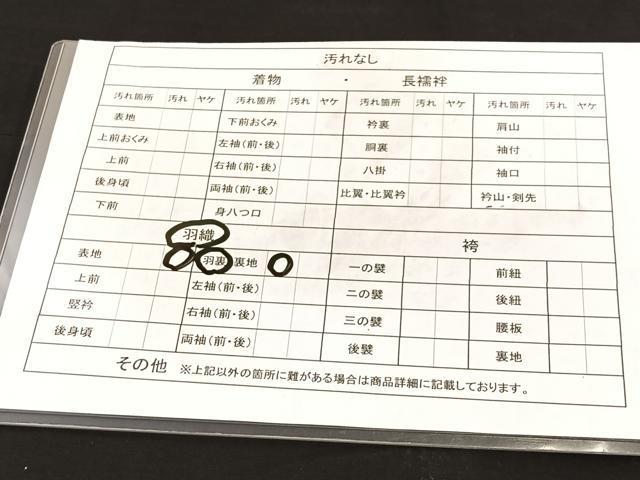 汚れなし
着物 ・ 長襦袢
汚れ箇所 汚れ ヤケ 汚れ箇所 汚れ ヤケ 汚れ箇所 汚れ ヤケ 汚れ箇所 汚れ ヤケ
表地 下前おくみ 衿裏 肩山
上前おくみ 左袖(前・後) 胴裏 袖付
上前 右袖(前・後) 八掛 袖口
後身頃 両袖(前・後) 比翼・比翼衿 衿山・剣先
下前 身八つ口
羽織 袴
表地 羽裏 裏地 一の襞 前紐
上前 左袖(前・後) 二の襞 後紐
竪衿 右袖(前・後) 三の襞 腰板
後身頃 両袖(前・後) 後襞 裏地
その他 ※上記以外の箇所に難がある場合は商品詳細に記載しております。